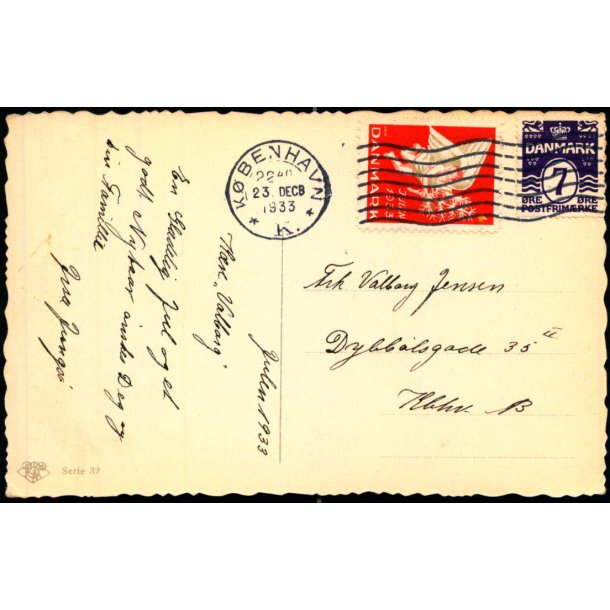 KØBENHAVN
22 40
23. DECB
1933
K.
DANMARK
JULEN
1933
DANMARK
7
ØRE ØRE
POSTFRIMÆRKE
Julen 1933
Kære "Valborg"
En Glædelig Jul og et
godt Nytaar ønskes Dig og
din Familie
Frk Valborg Jensen
Dybbølsgade 35 II
Kbhv. B
Serie 32